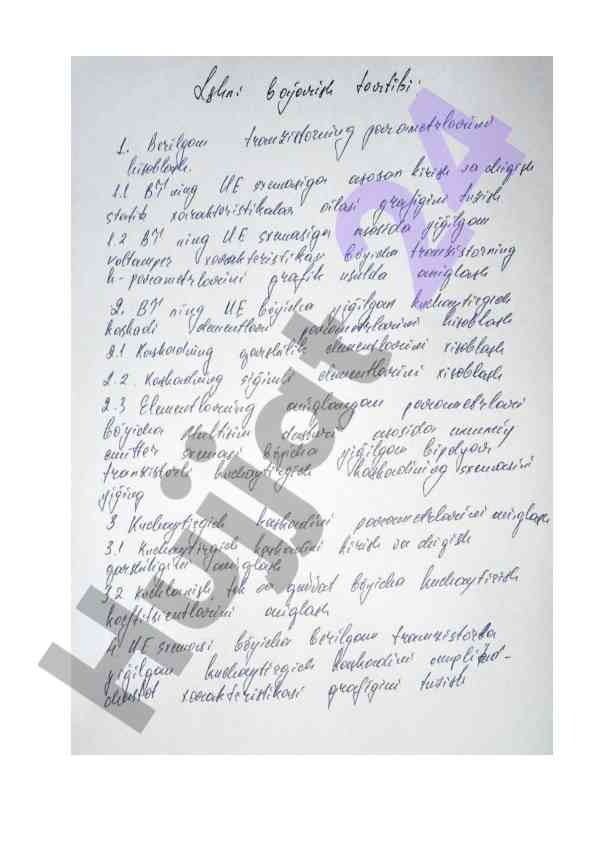 Ishni bajarish tartibi:
1. Berilgan tranzistorning parametrlarini
hisoblash.
1.1 BT ning UE sxemasiga asosan kirish va chiqish
statik xarakteristikalar oilasi grafigini tuzish
1.2 BT ning UE sxemasiga asosida yig'ilgan
voltamper xarakteristikasi bo'yicha tranzistorning
h-parametrlarini grafik usulda aniqlash
2. BT ning UE bo'yicha yig'ilgan kuchaytirgich
kaskadi elementlari parametrlarini hisoblash
2.1 Kaskadning qarshilik elementlarini xisoblash
2.2. Kaskadning sig'imli elementlarini xisoblash
2.3 Elementlarning aniqlangan parametrlari
bo'yicha Multisim dasturi asosida umumiy
emitter sxemasi bo'yicha yig'ilgan bipolyar
tranzistorli kuchaytirgich kaskadining sxemasini
yig'ing
3 Kuchaytirgich kaskadini parametrlarini aniqlash
3.1 Kuchaytirgich kaskadini kirish va chiqish
qarshiligini aniqlash
3.2 Kuchlanish tok va quvvat bo'yicha kuchaytirish
koeffitsientlarini aniqlash
4 UE sxemasi bo'yicha berilgan tranzistorda
yig'ilgan kuchaytirgich kaskadini amplitud-
chastot xarakteristikasi grafigini tuzish
Hujjat 24